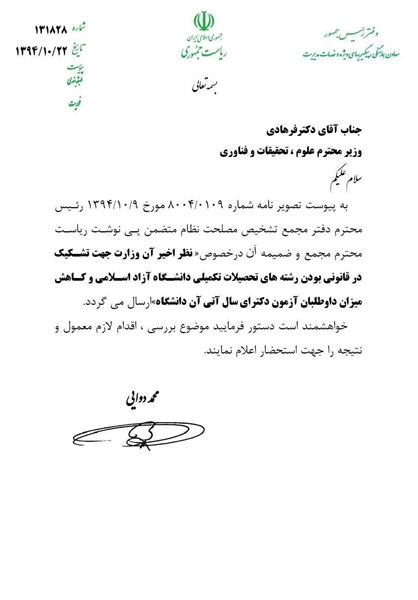 جمهوری اسلامی ایران
ریاست جمهوری
دفتر رئیس جمهور
معاون بازرسی، پیگیریهای ویژه و خدمات مدیریت
شماره ۱۳۱۸۲۸
تاریخ ۱۳۹۴/۱۰/۲۲
پیوست
طبقه‌بندی
فوریت
بسمه تعالی
جناب آقای دکترفرهادی
وزیر محترم علوم ، تحقیقات و فناوری
سلام علیکم
به پیوست تصویر نامه شماره ۸۰۰۴/۰۱۰۹ مورخ ۱۳۹۴/۱۰/۹ رئیس
محترم دفتر مجمع تشخیص مصلحت نظام متضمن پی نوشت ریاست
محترم مجمع و ضمیمه آن درخصوص«نظر اخیر آن وزارت جهت تشکیک
در قانونی بودن رشته های تحصیلات تکمیلی دانشگاه آزاد اسلامی و کاهش
میزان داوطلبان آزمون دکترای سال آتی آن دانشگاه»ارسال می گردد.
خواهشمند است دستور فرمایید موضوع بررسی ، اقدام لازم معمول و
نتیجه را جهت استحضار اعلام نمایند.
محمد دوایی